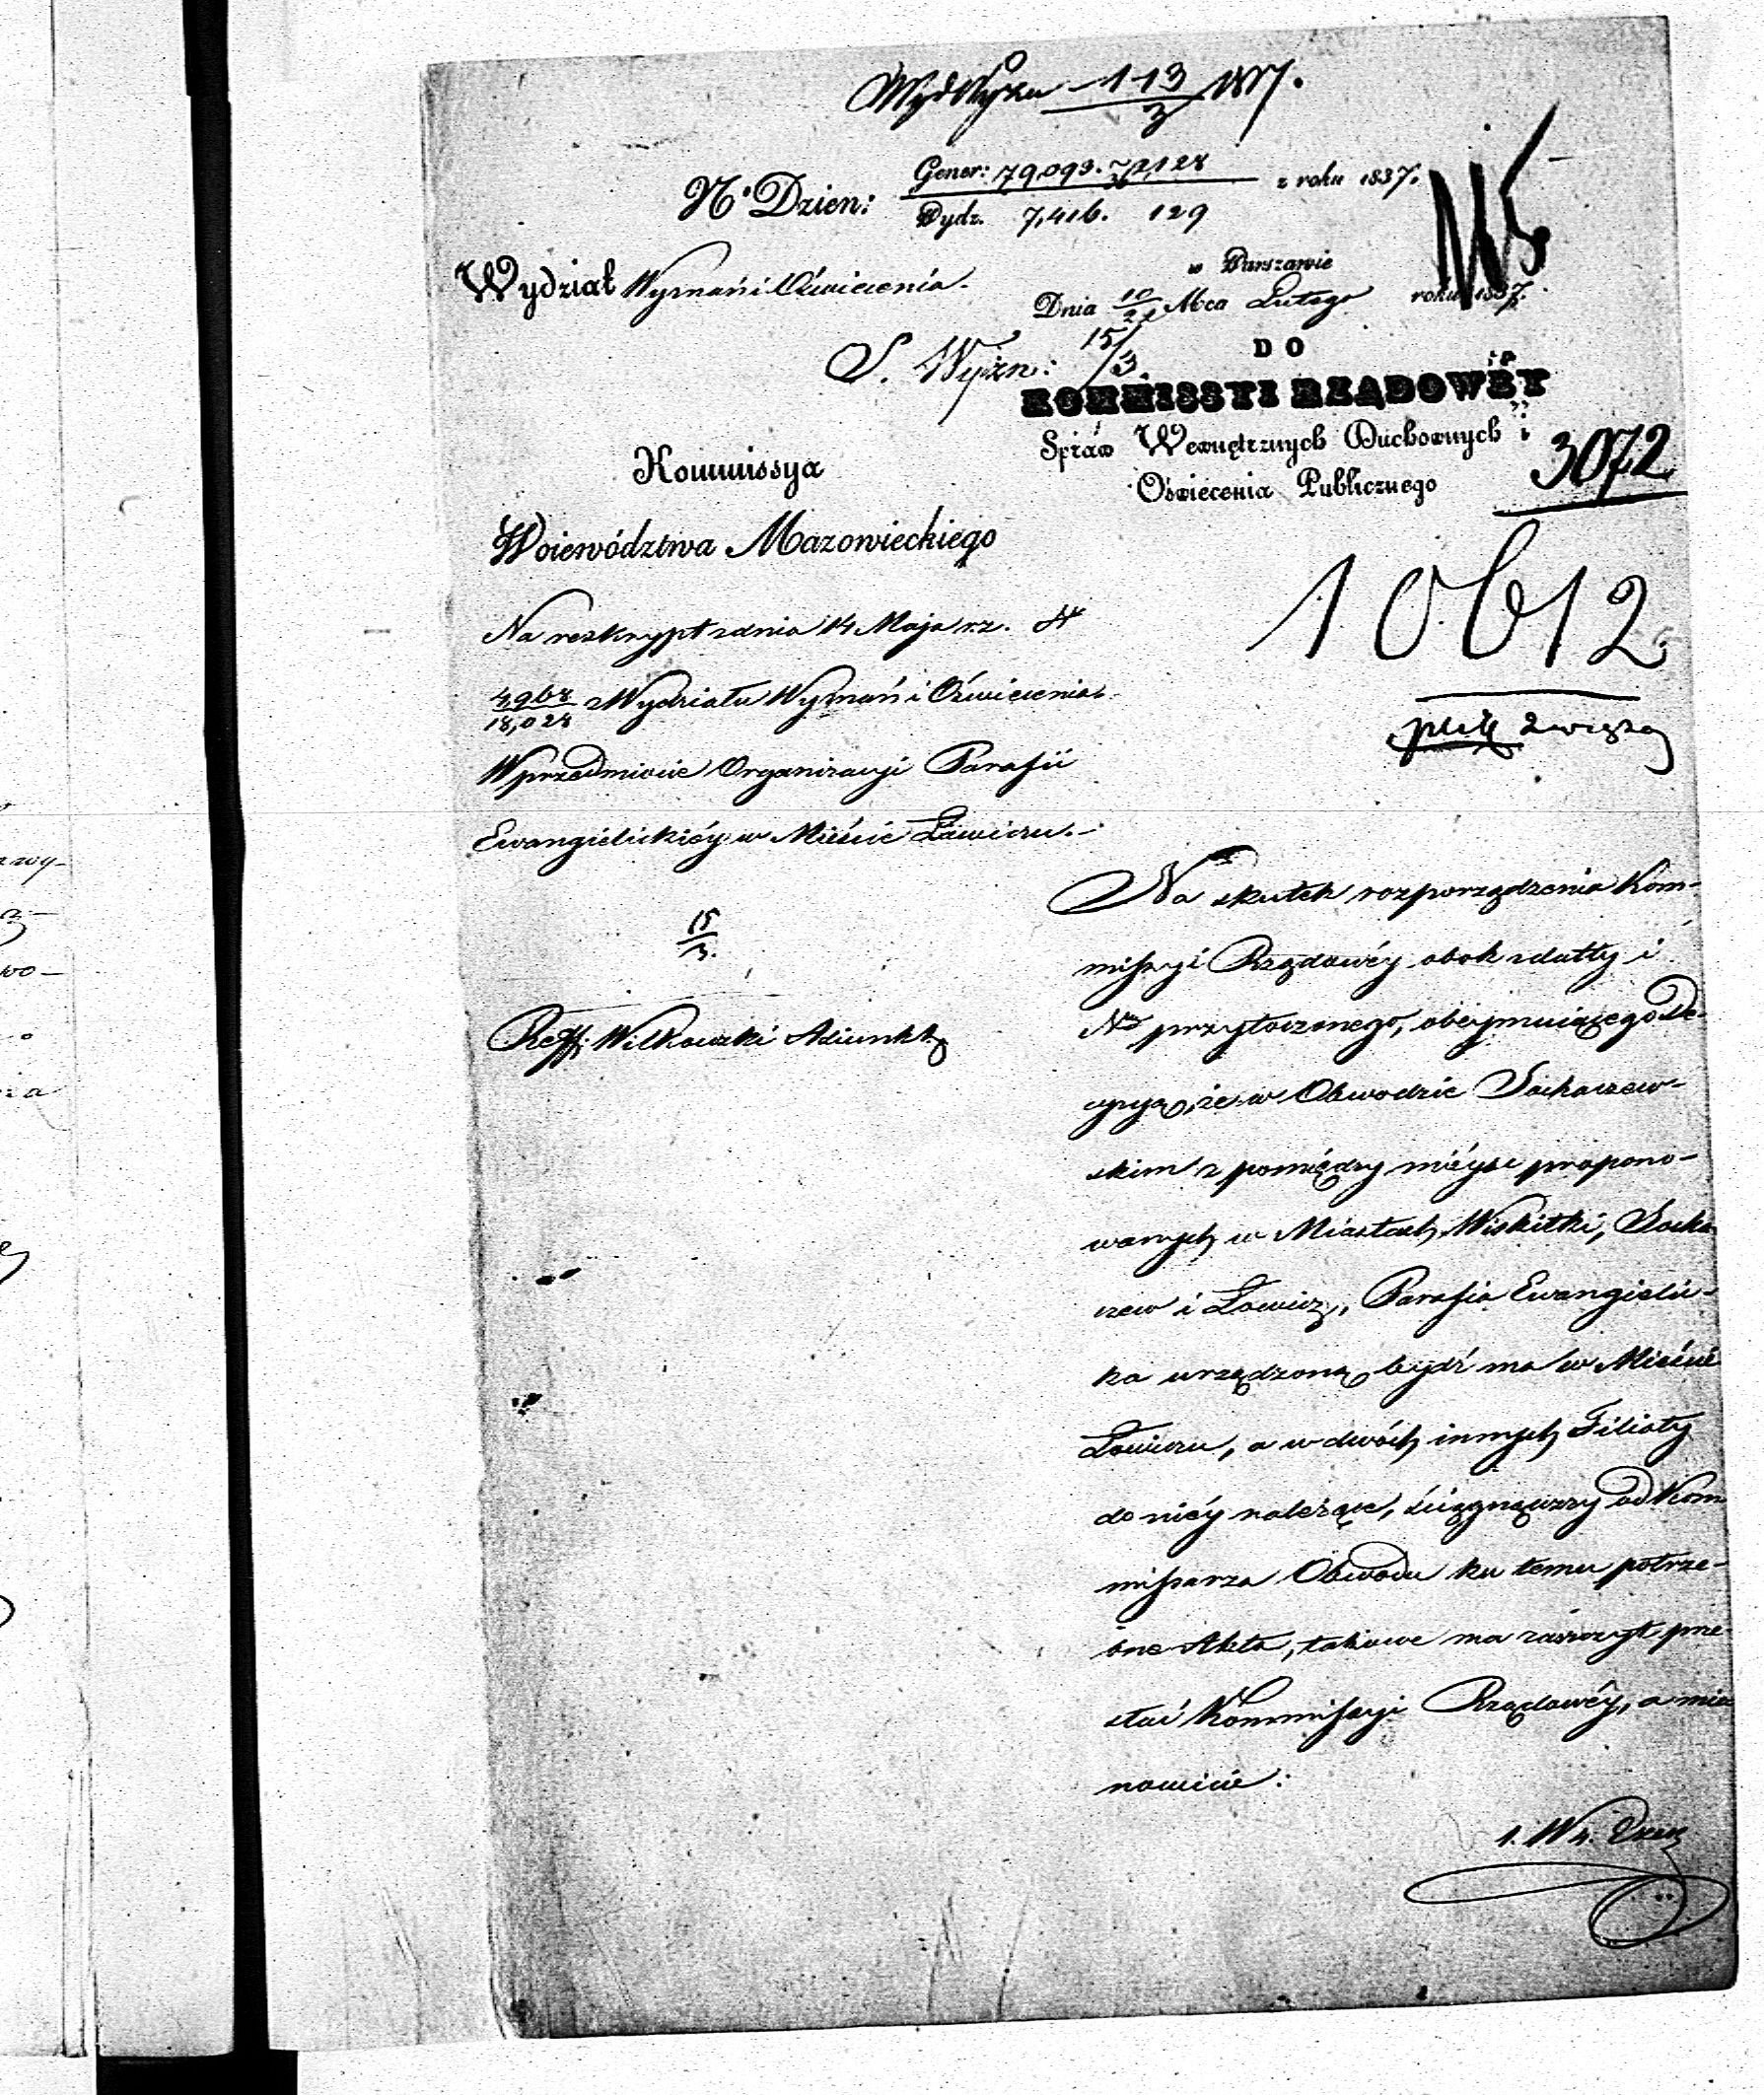 13/3 1837.
N° Dzien: Gener: 79,093. 2,128 / Wydz. 7,416. 129 z roku 1837.
w Warszawie
Wydział Wyznań i Oświecenia.
Dnia 10/2 Mca Lutego roku 1837.
S. Wyzn: 15/3.
DO
KOMMISSYI RZĄDOWÉY
Spraw Wewnętrznych Duchownych i
Oświecenia Publicznego
3072
Kommissya
Woiewództwa Mazowieckiego
10612
Na reskrypt z dnia 14 Maja r.z. N
4968/18,028 z Wydziału Wyznań i Oświecenia.
W przedmiocie Organizacyi Parafii
Ewangielickiéy w Mieście Łowiczu.
15/3.
Reff: Wilkowski Adiunkt
Na skutek rozporządzenia Kom-
missyi Rządowéy obok z datty i
Nru przytoczonego, obeymuiącego De-
cyzyą, że w Obwodzie Sochaczew-
skim z pomiędzy mieysc propono-
wanych w Miastach Wiskitki, Socha
czew i Łowicz, Parafia Ewangielic-
ka urządzoną bydź ma w Mieście
Łowiczu, a w dwóch innych Filiały
do niéy należące, ściągnąwszy od Kom
missarza Obwodu ku temu potrze-
bne Akta, takowe ma zaszczyt prze
słać Kommissyi Rządowéy, a mia
nowicie:
1.